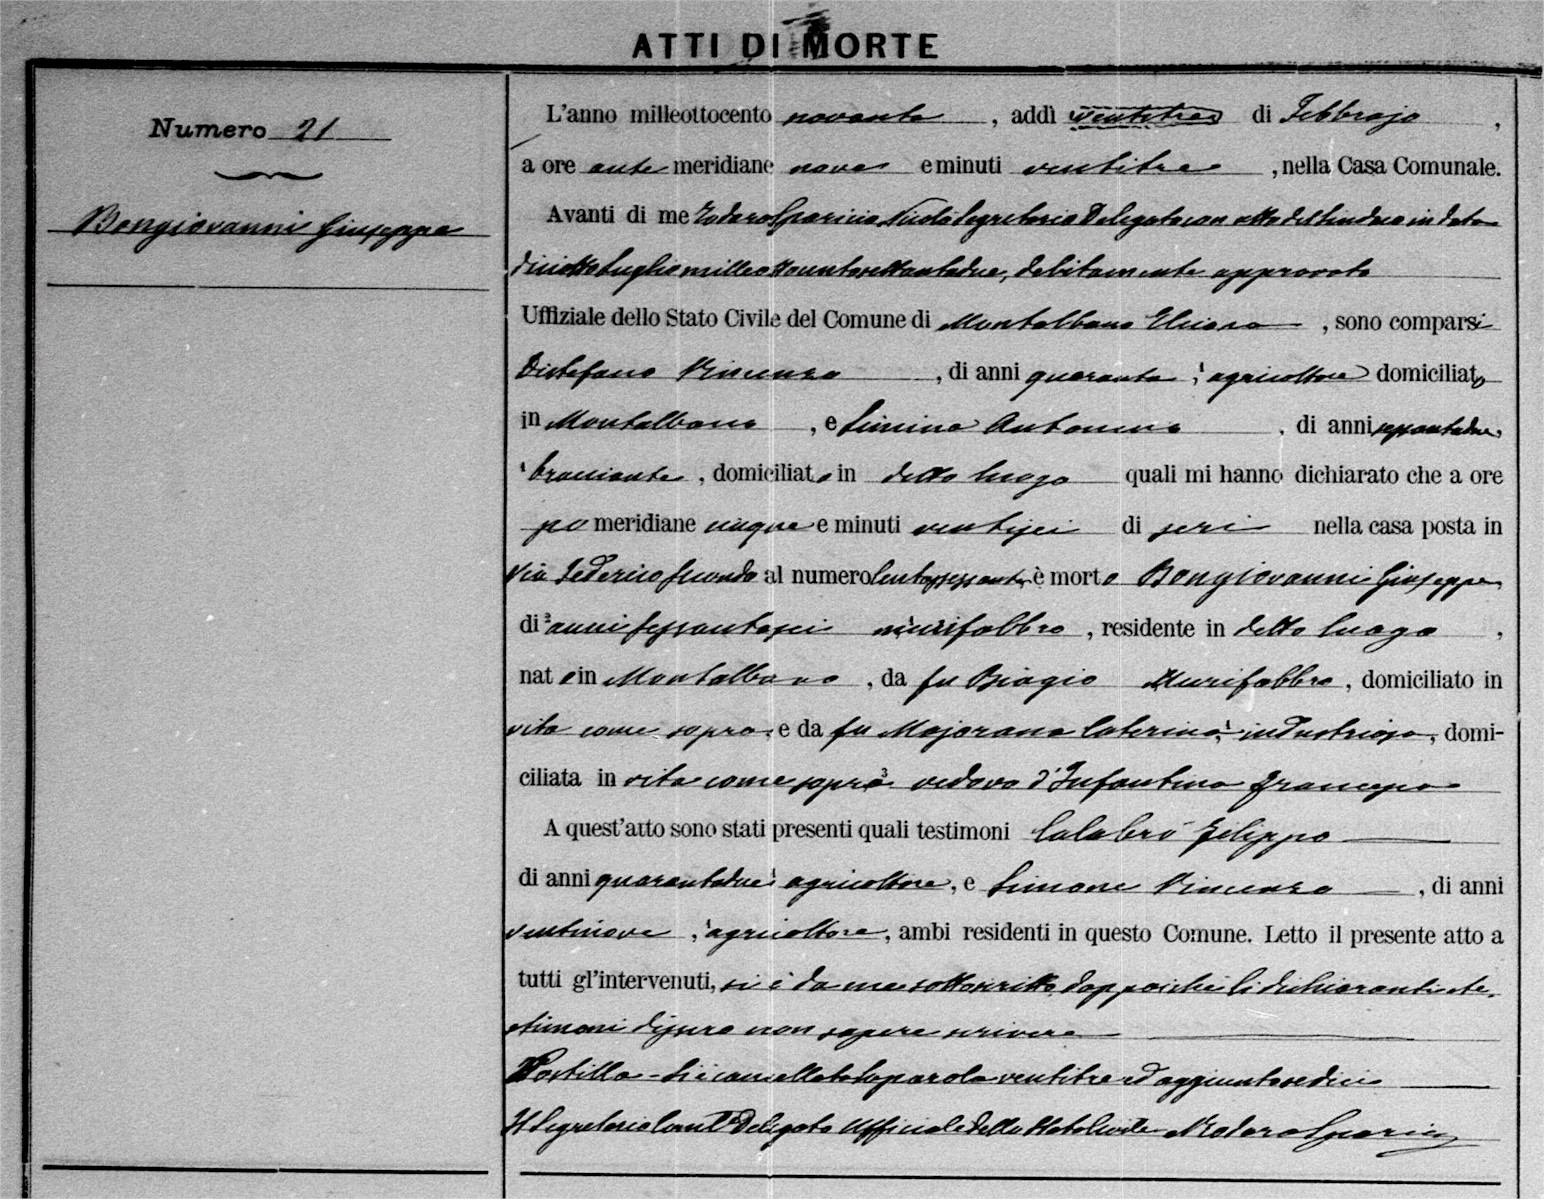 ATTI DI MORTE
Numero 21
Bongiovanni Giuseppe
L'anno milleottocento novanta, addì ventitre di Febbrajo,
a ore ante meridiane nove e minuti ventitre, nella Casa Comunale.
Avanti di me Todaro Sparicio Segretario Delegato con atto del Sindaco in data
diciotto Luglio milleottocentosettantadue, debitamente approvato
Uffiziale dello Stato Civile del Comune di Montalbano Elicona, sono comparsi
Distefano Vincenzo, di anni quaranta, agricoltore domiciliato
in Montalbano, e Simina Antonino, di anni
bracciante, domiciliato in detto luogo quali mi hanno dichiarato che a ore
po meridiane cinque e minuti ventisei di jeri nella casa posta in
Via Federico Secondo al numero Centosessanta, è morto Bongiovanni Giuseppe
di anni sessantasei murifabbro, residente in detto luogo,
nato in Montalbano, da fu Biagio Murifabbro, domiciliato in
vita come sopra, e da fu Majorana Caterina, industriosa, domi-
ciliata in vita come sopra vedovo d'Infantino Francesca
A quest'atto sono stati presenti quali testimoni Calabrò Filippo
di anni quarantadue agricoltore, e Simone Vincenzo, di anni
ventinove, agricoltore, ambi residenti in questo Comune. Letto il presente atto a
tutti gl'intervenuti, si è da me sottoscritto, dappoiché li dichiaranti e te-
stimoni dissero non sapere scrivere
Postilla - Si è cancellata la parola ventitre ed aggiunto sedici
Il Segretario Comle Delegato Ufficiale dello Stato Civile Todaro Sparicio